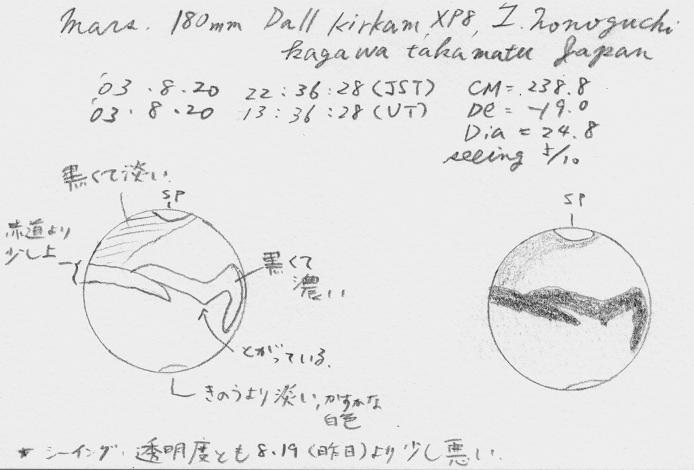 Mars. 180mm Dall Kirkam, XP8, I. Nonoguchi
Kagawa takamatu Japan
'03・8・20 22:36:28 (JST) CM=238.8
'03・8・20 13:36:28 (UT) DE=-19.0
Dia=24.8
seeing 5/10
黒くて淡い
SP
SP
赤道より
少し上
黒くて
濃い
とがっている。
きのうより淡い,かすかな
白色
* シーイング・透明度とも8.19(昨日)より少し悪い.